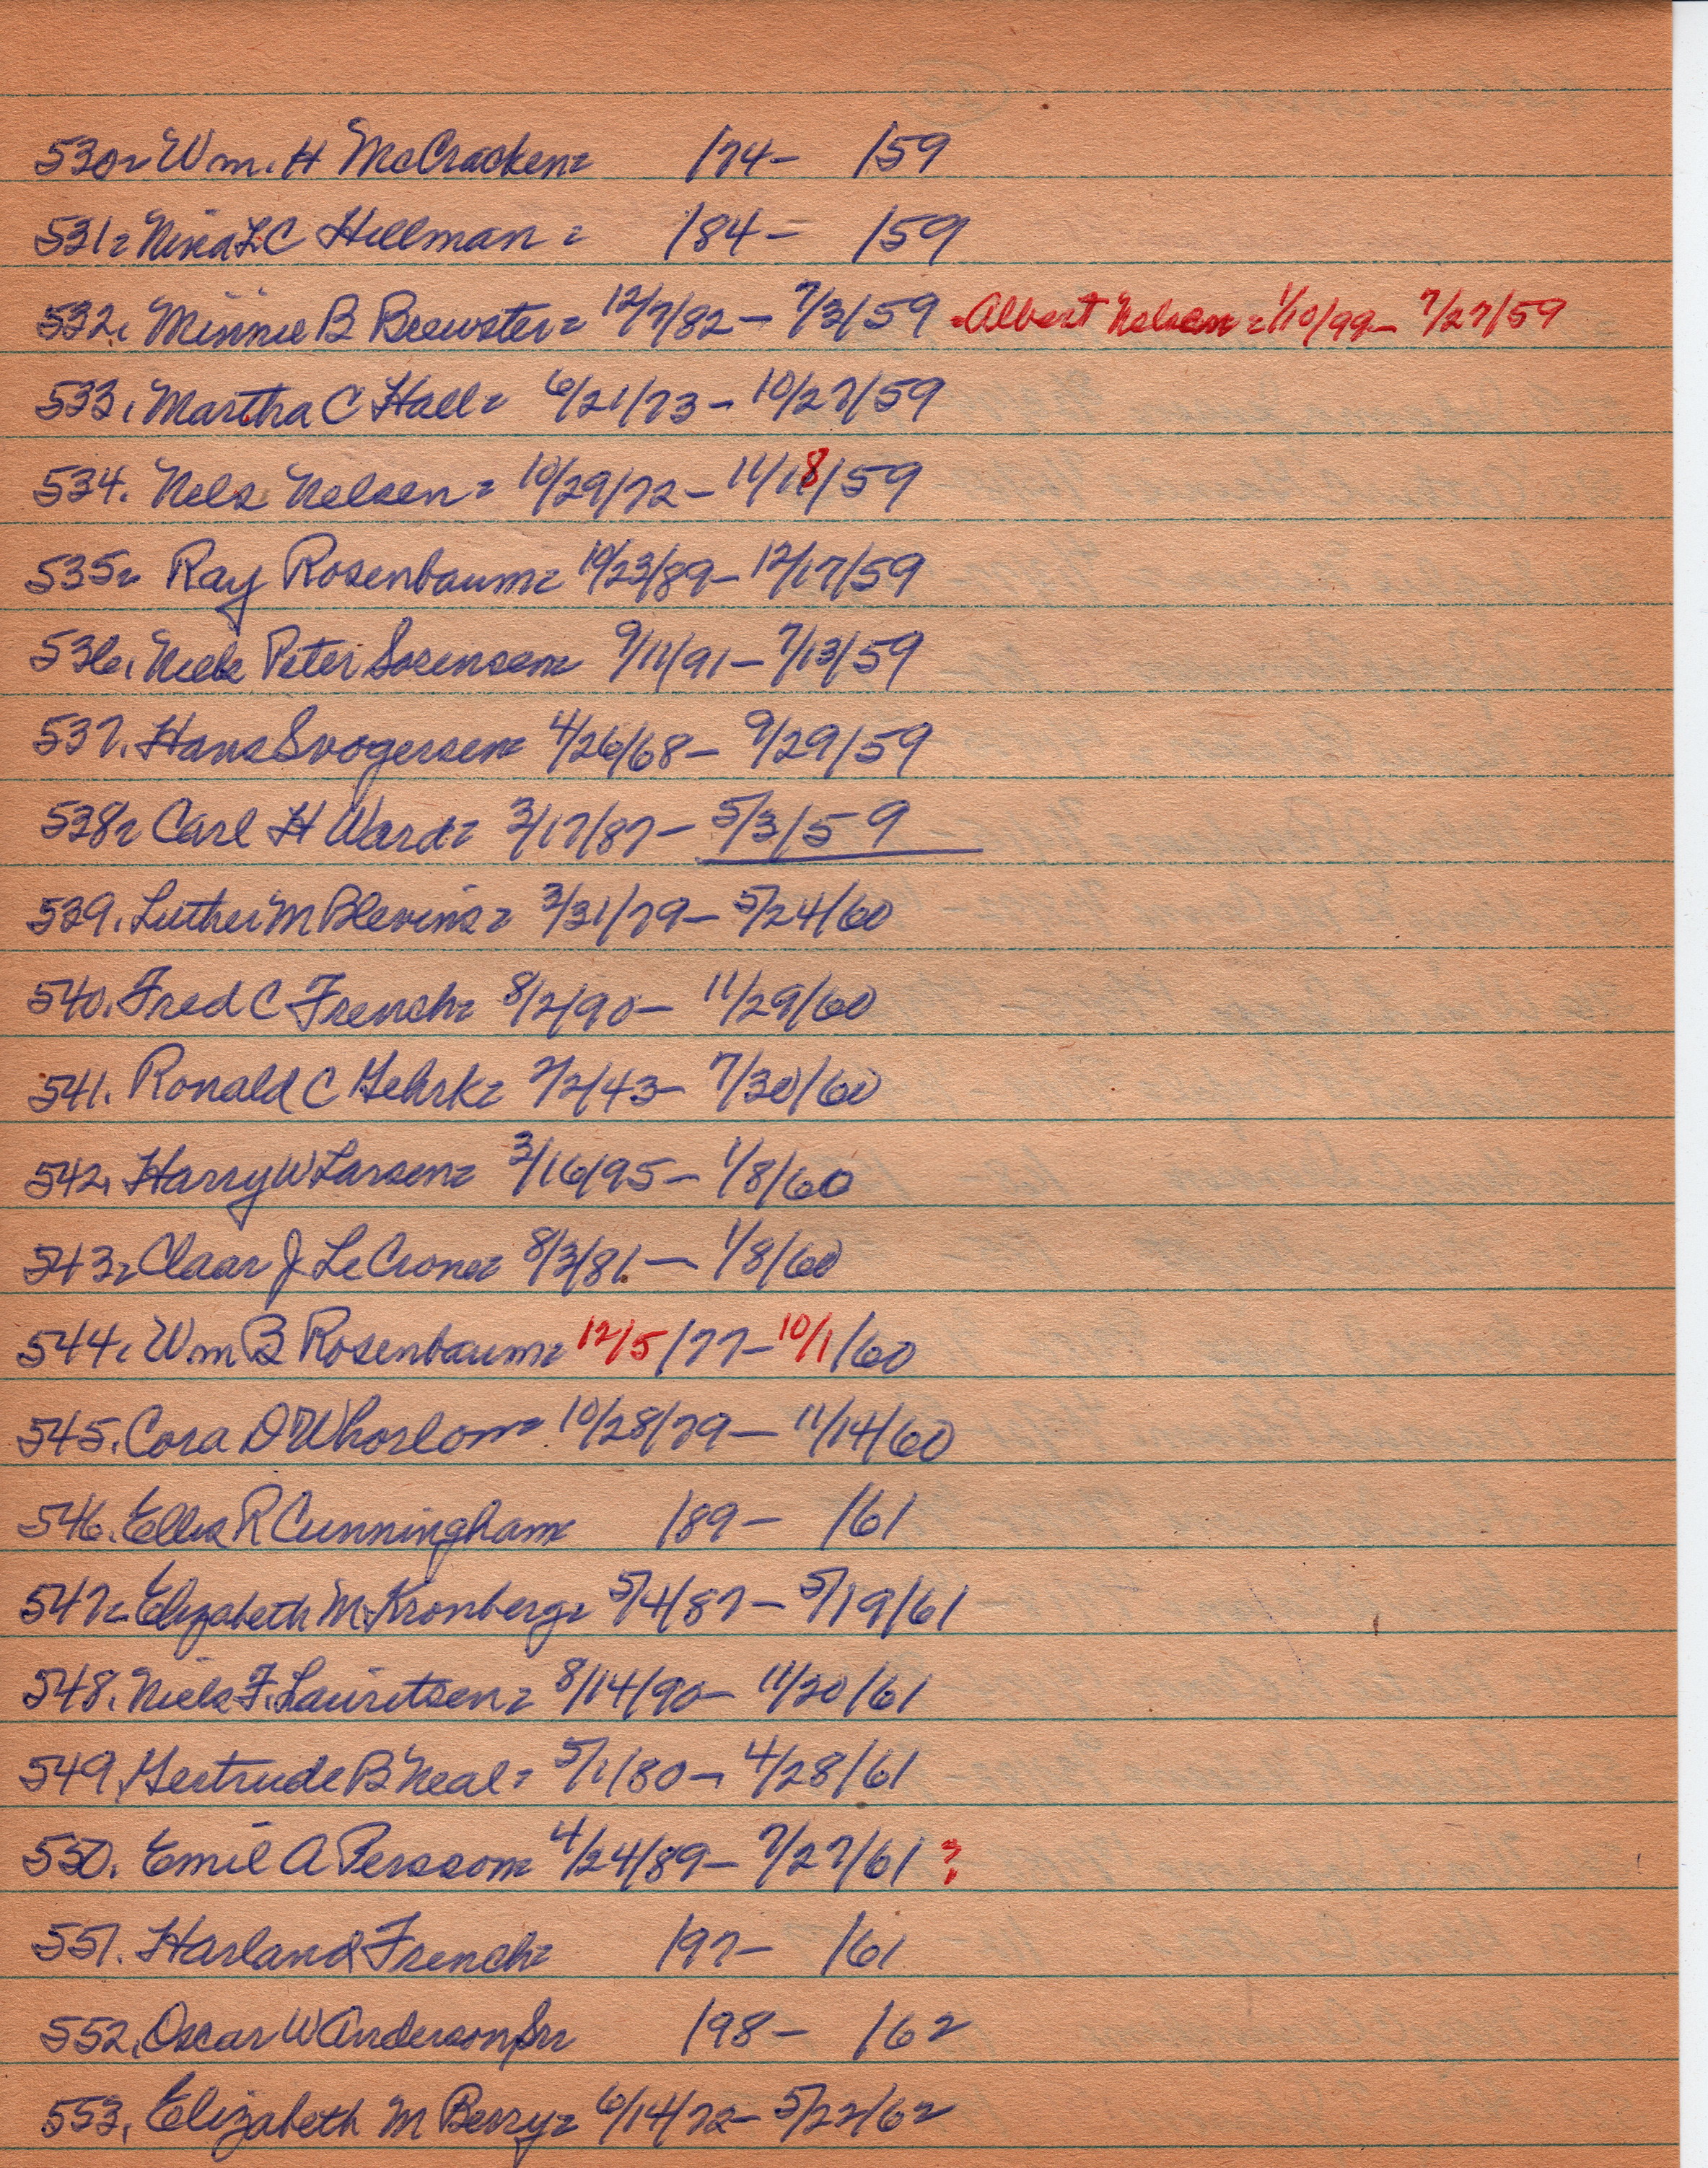 530. Wm. H McCracken= /74- /59
531= Nina L.C Hillman = /84- /59
532. Minnie B Brewster= 12/7/82- 7/3/59 -Albert Nelsen=1/10/99- 7/27/59
533. Martha C Hall= 6/21/73- 10/27/59
534. Nels Nelsen= 10/29/72- 11/18/59
535= Ray Rosenbaum= 10/23/89- 12/17/59
536. Niels Peter Sorensen= 9/11/91- 7/13/59
537. Hans Svogersen= 4/26/68- 9/29/59
538= Carl H Ward= 3/17/87- 5/3/59
539. Luther M Blevins= 3/31/79- 5/24/60
540. Fred C French= 8/2/90- 11/29/60
541. Ronald C Gehrk= 7/2/43- 7/30/60
542. Harry W Larsen= 3/16/95- 1/8/60
543= Claar J LeCrone= 8/3/81- 1/8/60
544. Wm B Rosenbaum= 12/5/77- 10/1/60
545. Cora D Whorlom= 10/28/79- 11/14/60
546. Ellis R Cunningham= /89- /61
547= Elizabeth M Kronberg= 5/4/87- 5/19/61
548. Niels F. Lauritsen= 8/14/90- 11/20/61
549. Gertrude B Neal= 5/1/80- 4/28/61
550. Emil A Persson= 4/24/89- 7/27/61 ?
551. Harland French= /97- /61
552. Oscar W Anderson Sr= /98- /62
553. Elizabeth M Berry= 6/14/72- 5/22/62